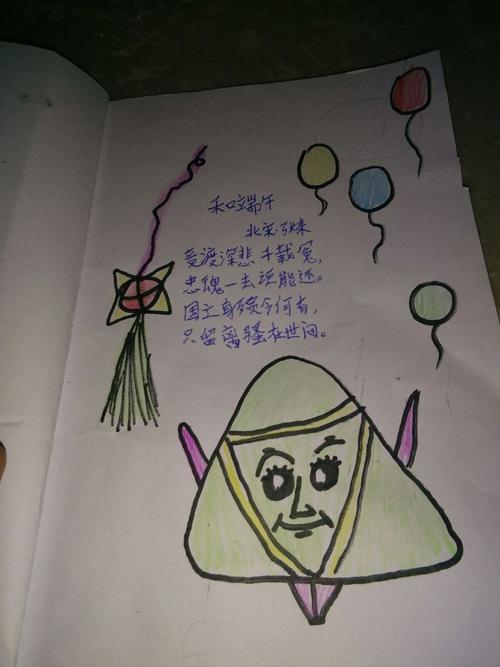 和端午
北宋·张耒
竞渡深悲千载冤，
忠魂一去讵能还。
国亡身殒今何有，
只留离骚在世间。